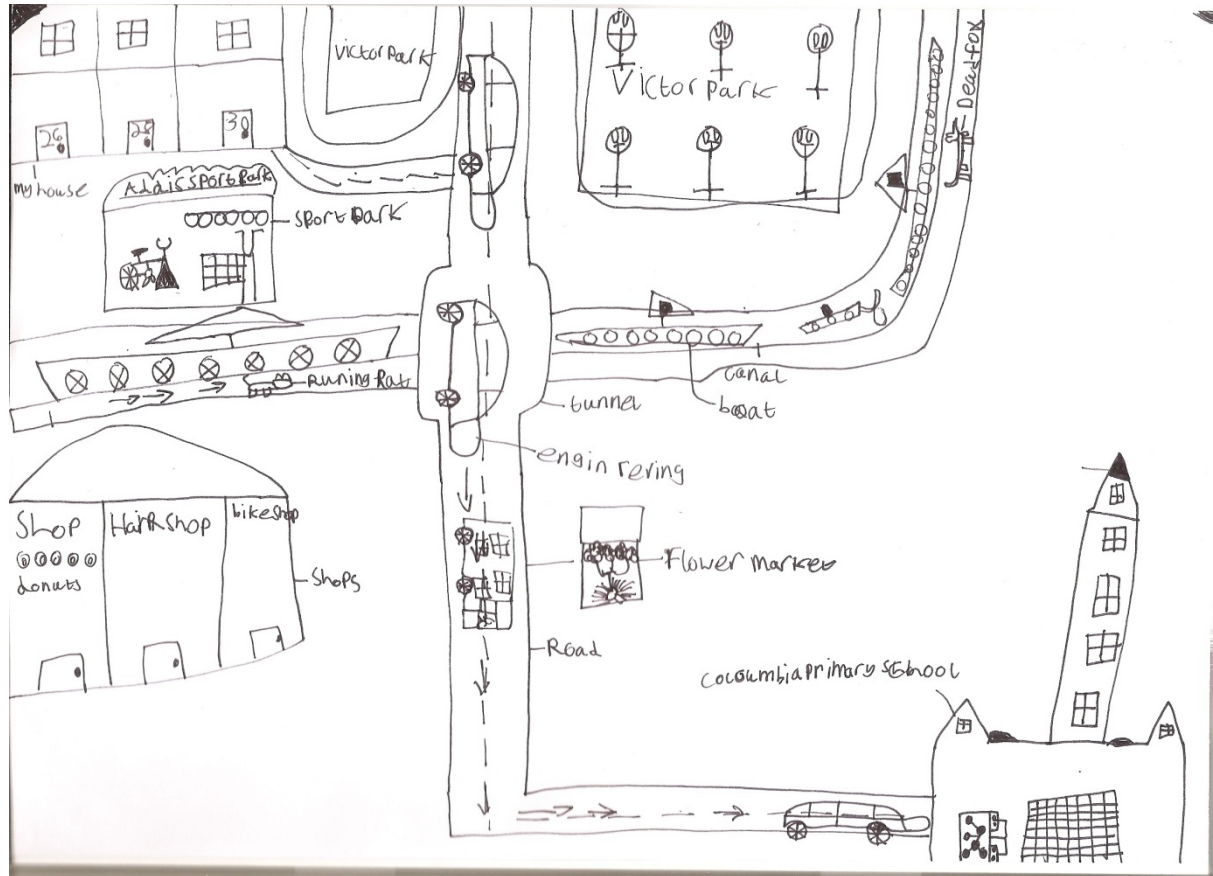 victor park
Victor park
Dead fox
26
28
30
my house
Addis sport park
sport park
Runing Rat
canal
boat
tunnel
engin rering
Shop
donuts
HairRshop
bike shop
shops
Flower market
Road
cocoumbia primary school